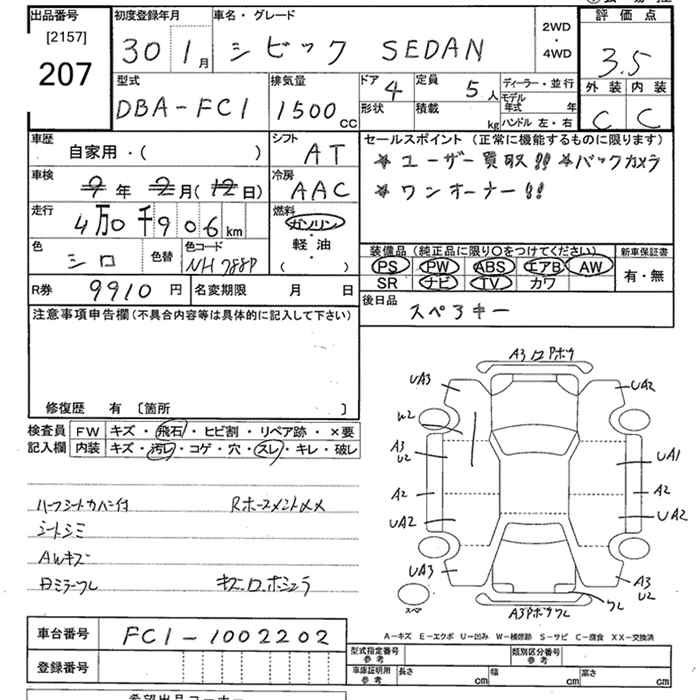 出品番号 初度登録年月 車名・グレード 2WD ・ 4WD 評価点
[2157]
207 30 1月 シビック SEDAN 3.5
型式 排気量 ドア 4 定員 5人 ディーラー・並行 外装 内装
DBA-FC1 1500cc 形状 積載 kg モデル年式 年 C C
ハンドル 左・右
車歴 自家用・( ) シフト AT セールスポイント (正常に機能するものに限ります)
車検 9年 2月(12日) 冷房 AAC ★ユーザー買取!! ★バックカメラ
★ワンオーナー!!
走行 4万0千906km 燃料 ガソリン・軽油 ( ・ )
色 シロ 色替 色コード NH788P
装備品 (純正品に限り○をつけてください) 新車保証書
PS PW ABS エアB AW 有・無
SR ナビ TV カワ
R券 9910円 名変期限 月 日
後日品 スペアキー
注意事項申告欄 (不具合内容等は具体的に記入して下さい)
修復歴 有 〔箇所 〕
検査員 FW キズ・飛石・ヒビ割・リペア跡・×要
記入欄 内装 キズ・汚レ・コゲ・穴・スレ・キレ・破レ
ハーフシートカバー付
シートシミ
AWキズ
A3 ロPホウ
UA3 UA2
W2
A3 U2 UA1
A2 A2
UA2 UA2
UA3 A3 U2
スペ
A-キズ E-エクボ U-凹み W-補修跡 S-サビ C-腐食 XX-交換済
車台番号 FC1-1002202
登録番号
型式指定番号 参考 類別区分番号 参考
車庫証明用 参考 長さ cm 幅 cm 高さ cm
希望出品コーナー